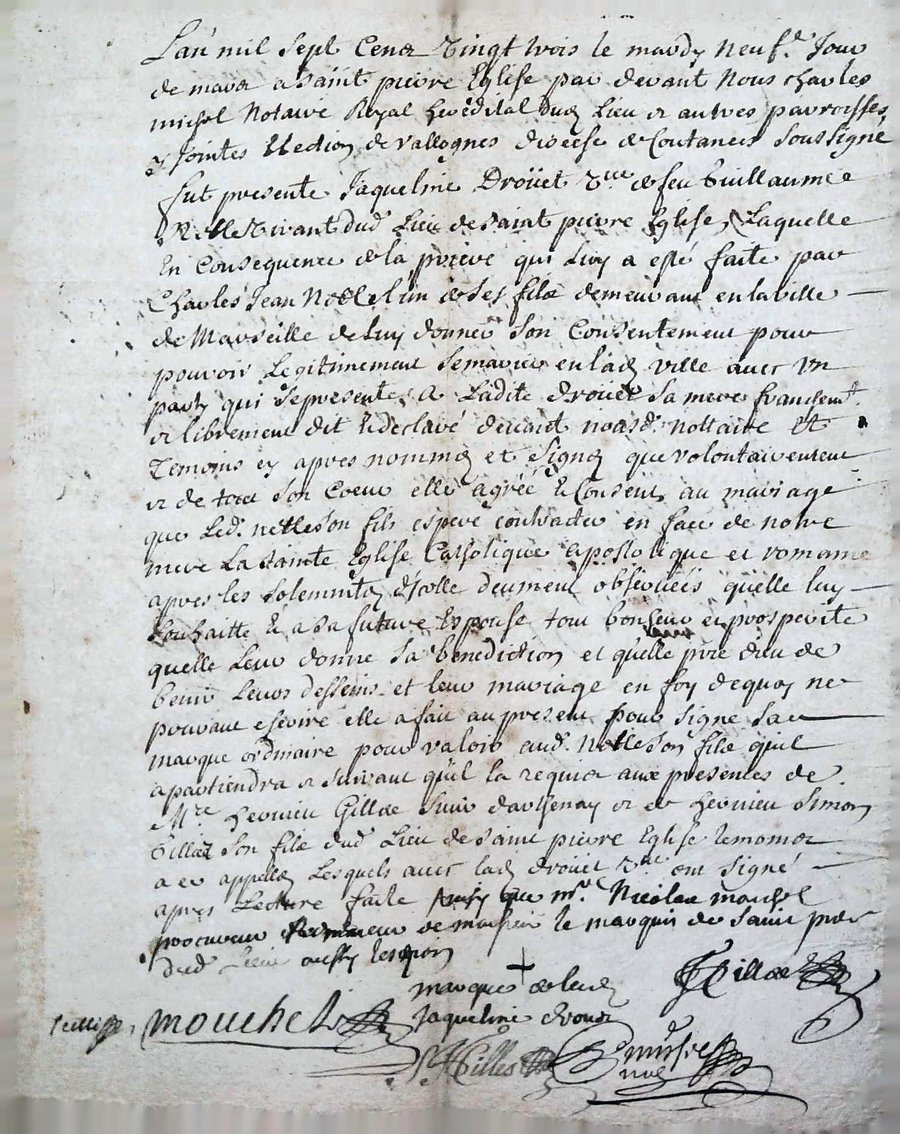 Lan mil Sept Centz Vingt trois le mardy neufe. Jour
de mars a saint pierre Eglise par devant Nous charles
michel Notaire Royal herédital dud Lieu et autres parroisses
y Jointes Election de vallognes diocese de Coutances soussigné
fut presente Jaqueline Droüet vve de feu Guillaume
Nelle vivant dud. Lieu de saint pierre Eglise, Laquelle
En Consequence de la priere qui Luy a esté faite par
Charles Jean Nelle l'un de ses filz demeurant en la ville
de Marseille de luy donner son Consentement pour
pouvoir Legitimement se marier en lad. ville avec un
party qui se presente, a Ladite droüet sa mere franchemt.
et librement dit & declaré devant nousd. nottaire Et
Temoins cy apres nommez et Signez que volontairement
et de tout son Coeur elle agrée & Consent au mariage
que Led. nelle son fils espere contracter en face de notre
mere La sainte Eglise Catholique apostolique et romaine
apres les solemnitez d'icelle deument observées quelle luy
souhaitte & a sa future Espouse tout bonheur et prosperite
quelle Leur donne sa benediction et quelle prie dieu de
benir Leurs desseins et leur mariage en foy dequoy ne
pouvant escrire elle a fait au present pour signe sa
marque ordinaire pour valoir aud. Nelle son filz quil
apartiendra et suivant quil la requis aux presentes de
Mre. hervieu Gilles Sieur et de hervieu Simon
Gilles son filz dud Lieu de saint pierre Eglise temoins
a ce appellez Lesquels avec lad. droüet vve ont signé
apres Lecture faite ainsy que mr. Nicolas mouchel
procureur de monsieur le marquis de saint pierre
dud Lieu aussy tesmoin
marque de lad
Jaqueline droüet
Gilles
mouchel
Gilles